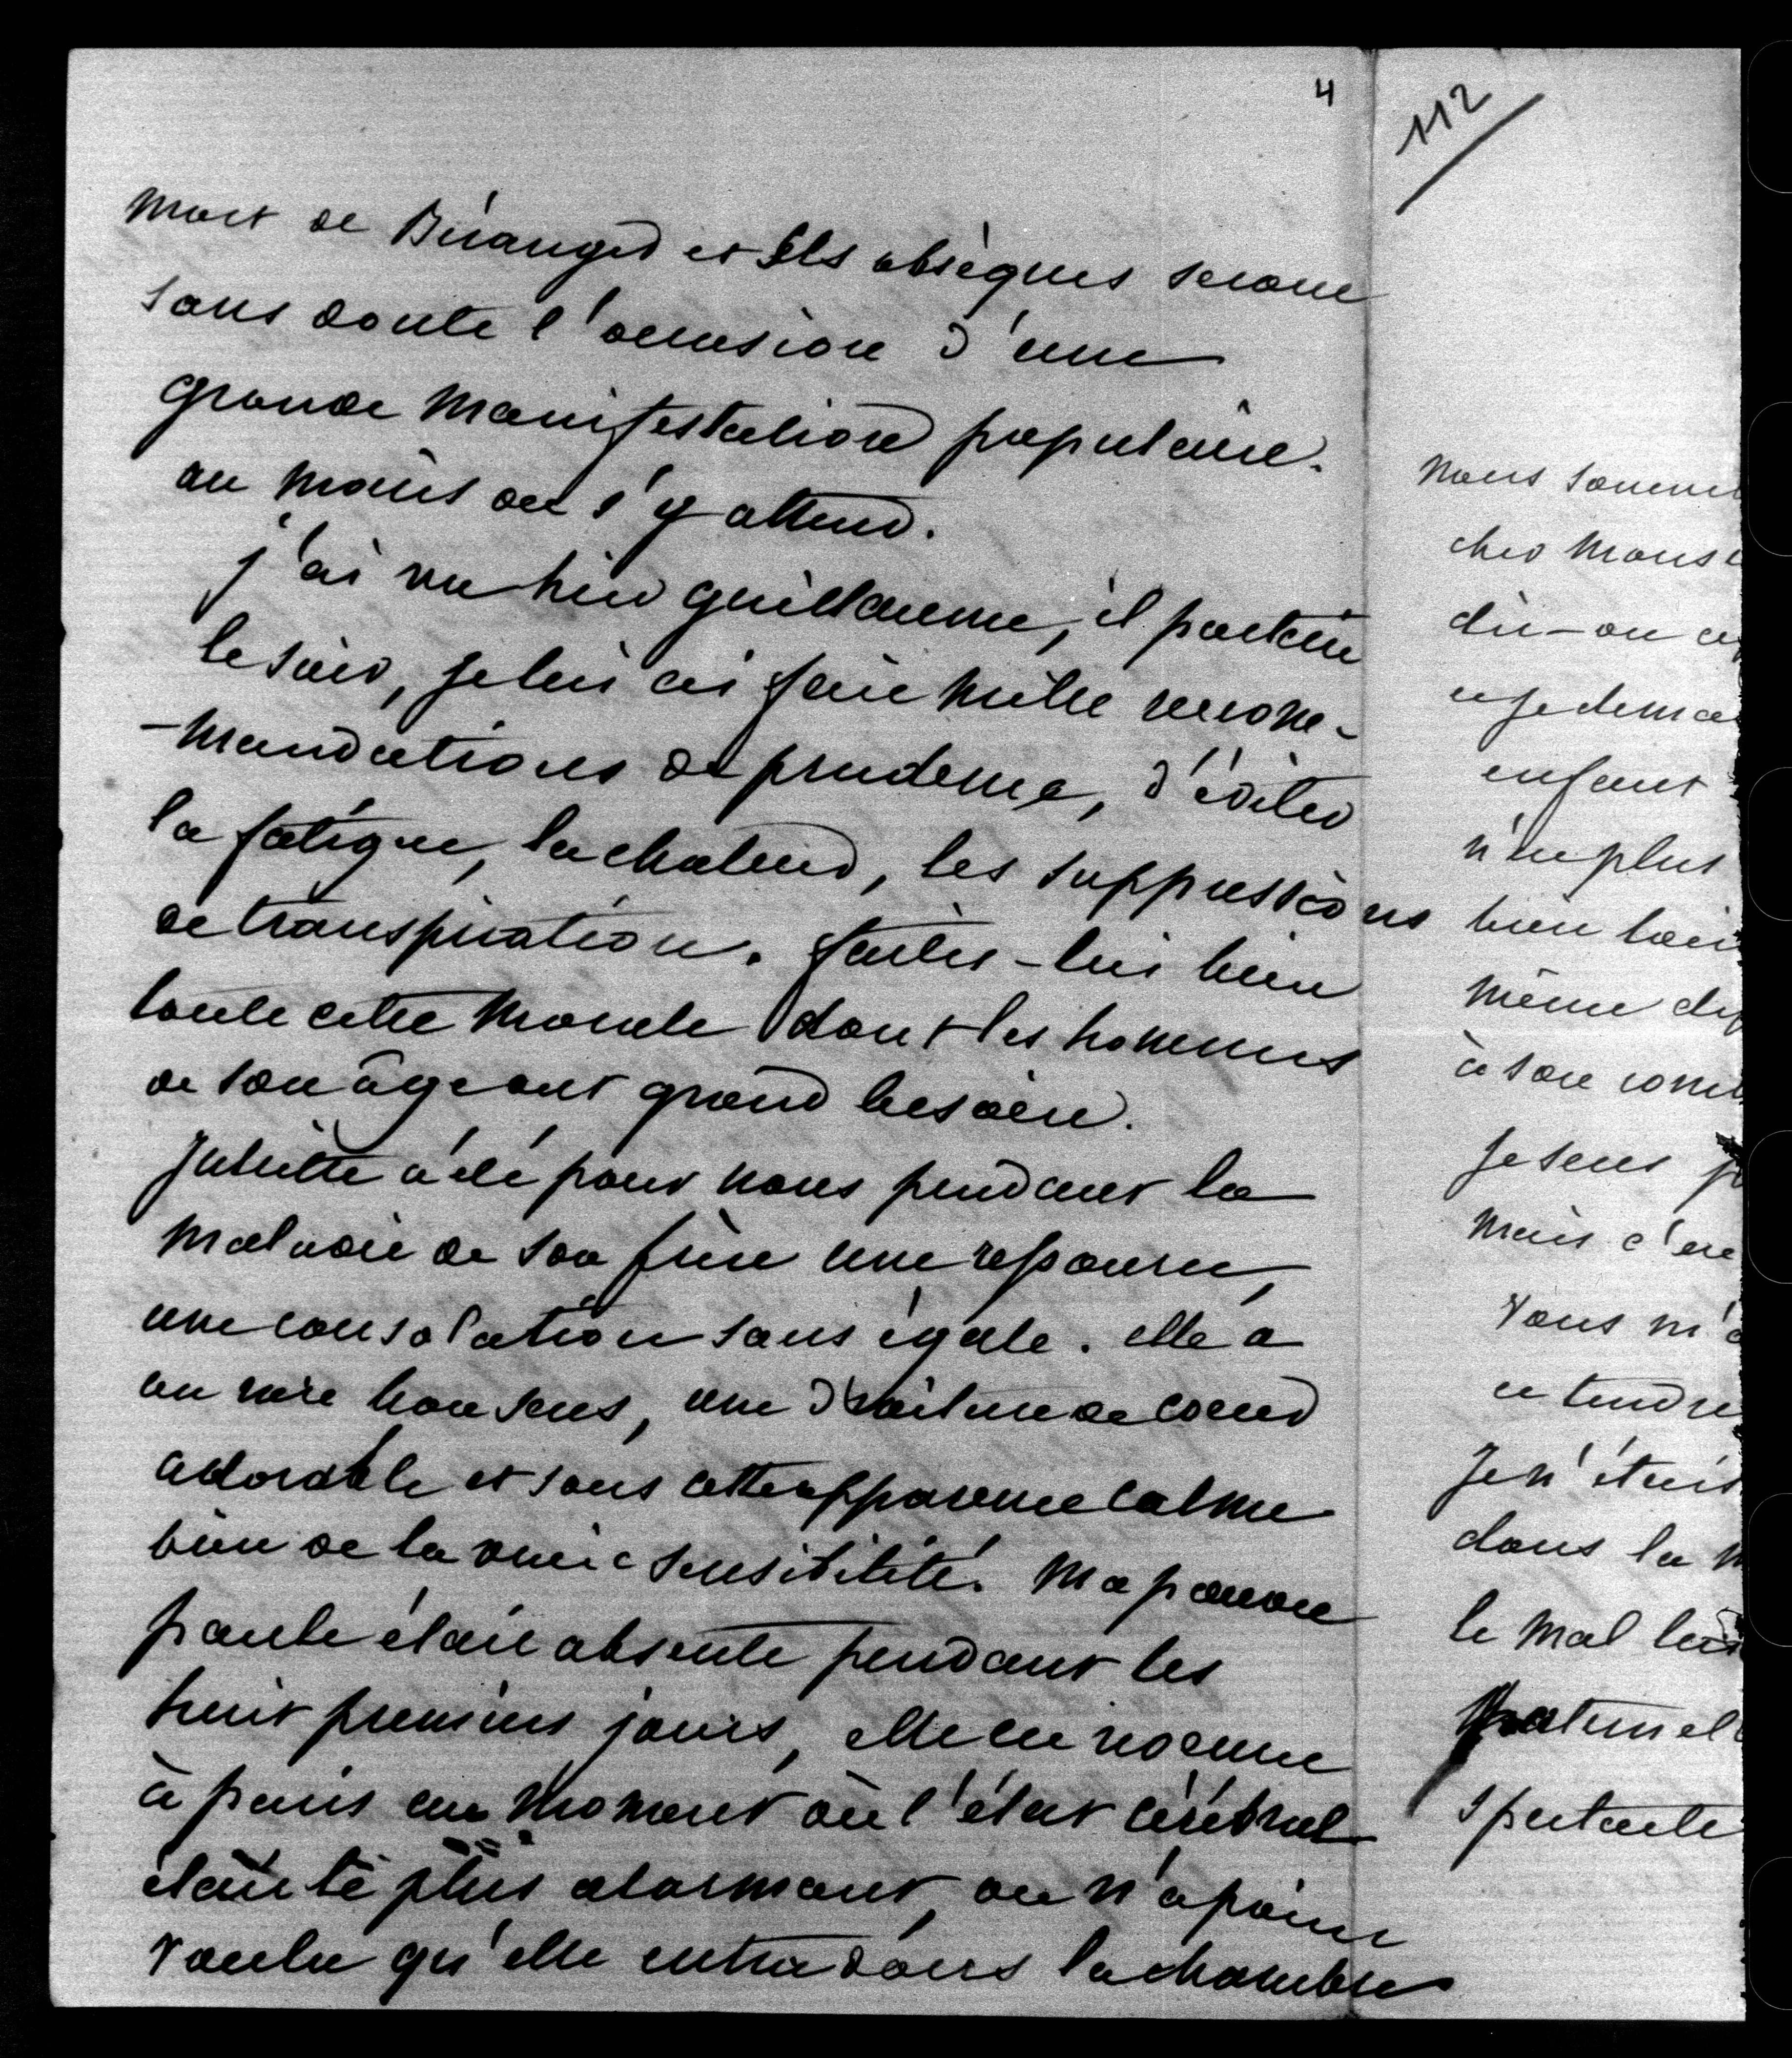 4
112
mort de Béranger et ses obsèques seront
sans doute l'occasion d'une
grande manifestation populaire.
au moins on s'y attend.
j'ai vu hier guillaume, il partait
le soir, je lui ai fait mille recom-
-mandations de prudence, d'éviter
la fatigue, la chaleur, les suppressions
de transpiration. faites-lui bien
toute cette morale dont les hommes
de son âge ont grand besoin.
Juliette a été pour nous pendant la
maladie de son frère une ressource,
une consolation sans égale. elle a
un rare bon sens, une droiture de coeur
adorable et sous cette apparence calme
bien de la vraie sensibilité. Ma pauvre
paule était absente pendant les
huit premiers jours, elle est revenue
à paris au moment où l'état cérébral
était le plus alarmant, on n'a point
voulu qu'elle entra dans la chambre
nous somme
cher Mons
dit-on
et je dema
enfant
n'en plus
bien loin
même
à son
Je sens
mais c'est
Vous m'a
et tendre
Je n'étais
dans la
le mal
spectacle